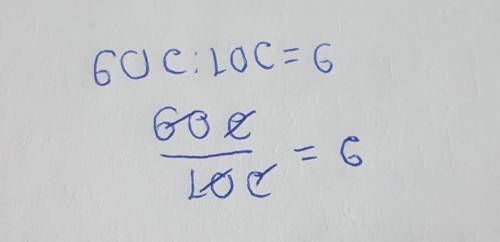 60 c : 10 c = 6
60 c
10 c
= 6